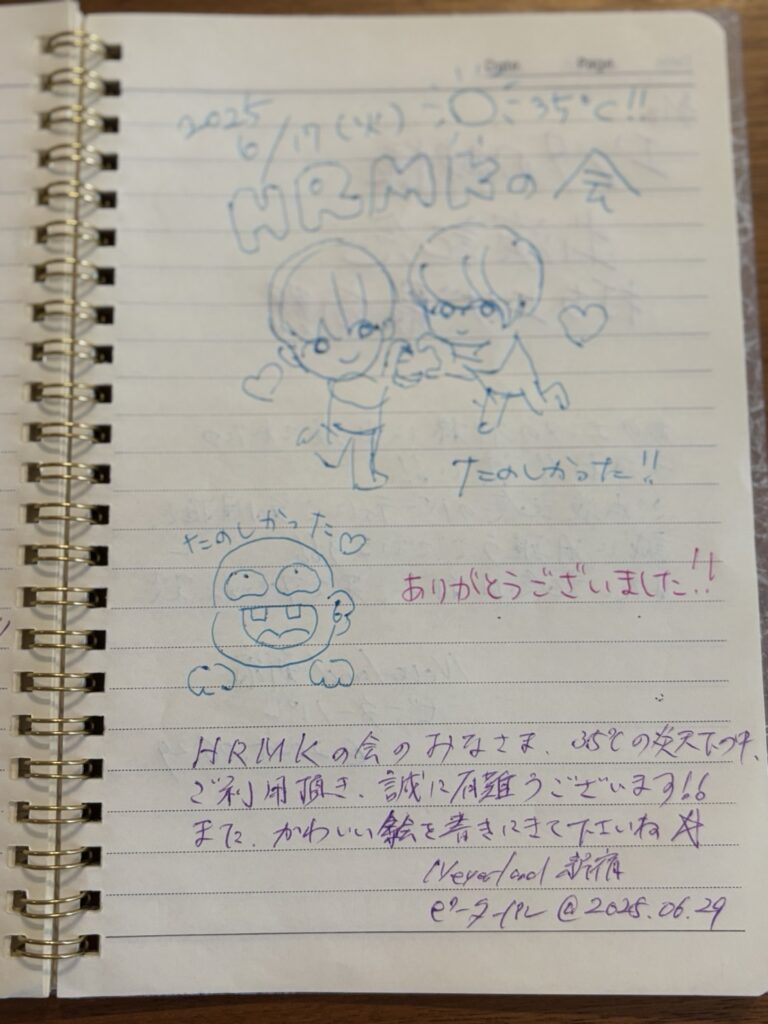 Date Page
2025
6/17(火) 35℃!!
HRMKの会
たのしかった!!
たのしかった♡
ありがとうございました!!
HRMKの会のみなさま、35℃の炎天下の中、
ご利用頂き、誠に有難うございます!!
また、かわいい絵を書きにきて下さいね
Neverland 新宿
ピーターパン @2025.06.29